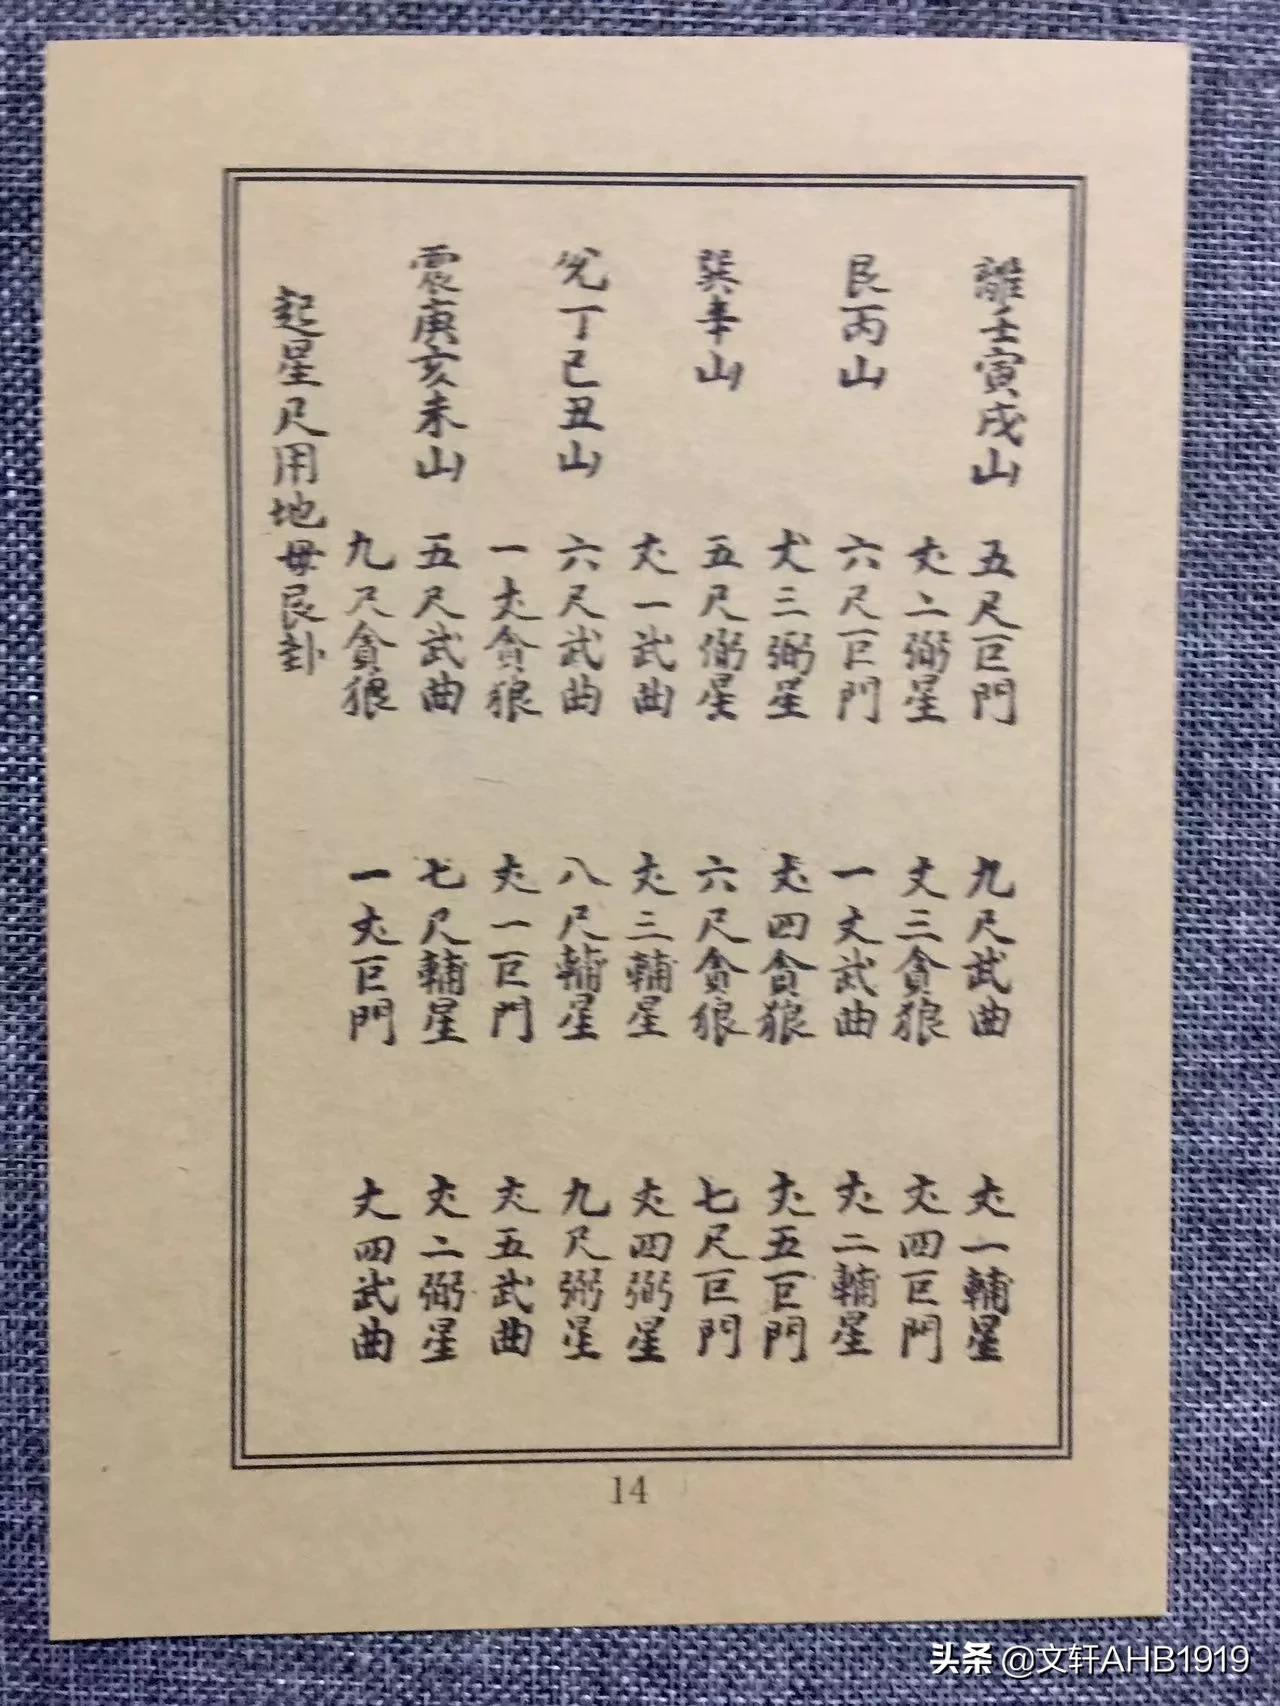 離壬寅戌山 五尺巨門 九尺武曲 丈一輔星
丈二弼星 丈三貪狼 丈四巨門
艮丙山 六尺巨門 一丈武曲 丈二輔星
丈三弼星 丈四貪狼 丈五巨門
巽辛山 五尺弼星 六尺貪狼 七尺巨門
丈一武曲 丈三輔星 丈四弼星
兊丁巳丑山 六尺武曲 八尺輔星 九尺弼星
一丈貪狼 丈一巨門 丈五武曲
震庚亥未山 五尺武曲 七尺輔星 丈二弼星
九尺貪狼 一丈巨門 丈四武曲
起星尺用地母艮卦
14
头条 @文轩AHB1919